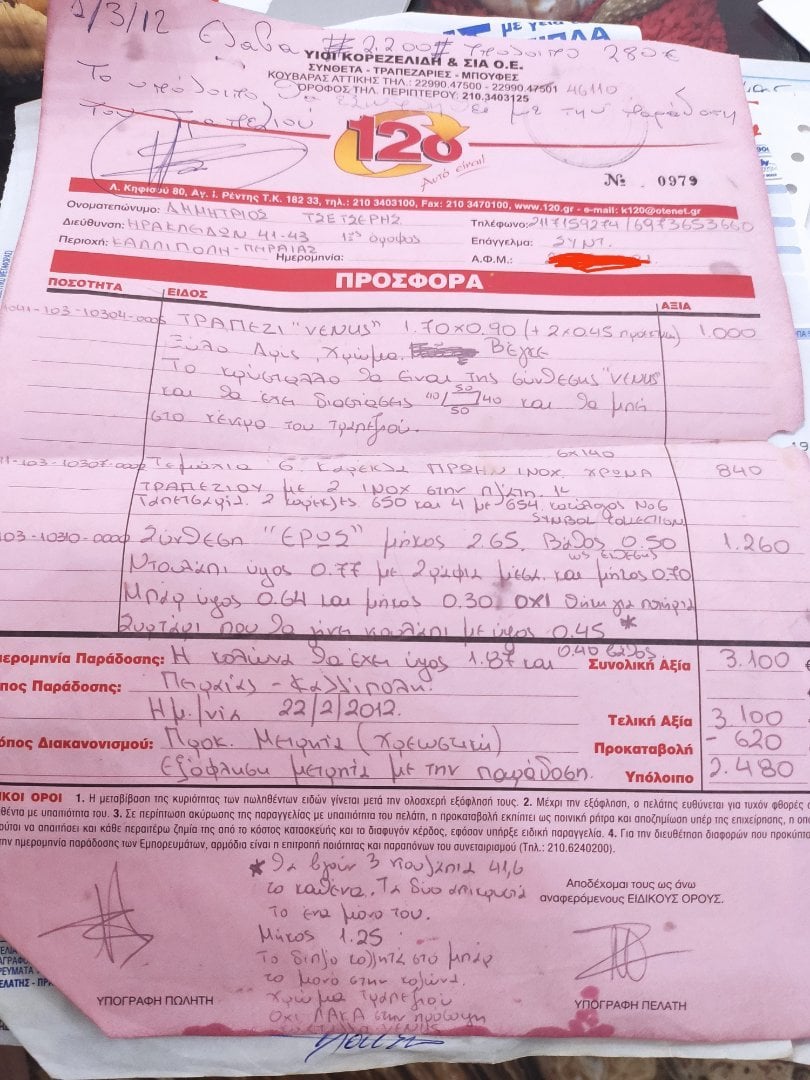 1/3/12 Έλαβα #2.200# υπόλοιπο 280€
ΥΙΟΙ ΚΟΡΕΖΕΛΙΔΗ & ΣΙΑ Ο.Ε.
ΣΥΝΘΕΤΑ - ΤΡΑΠΕΖΑΡΙΕΣ - ΜΠΟΥΦΕΣ
ΚΟΥΒΑΡΑΣ ΑΤΤΙΚΗΣ ΤΗΛ.: 22990.47500 - 22990.47501 46110
ΟΡΟΦΟΣ ΤΗΛ. ΠΕΡΙΠΤΕΡΟΥ: 210.3403125
Το υπόλοιπο θα με την παράδοση
του τραπεζιού
120
Αυτό είναι!
№ 0979
Λ. Κηφισού 80, Αγ. Ι. Ρέντης Τ.Κ. 182 33, τηλ.: 210 3403100, Fax: 210 3470100, www.120.gr - e-mail: k120@otenet.gr
Ονοματεπώνυμο: ΔΗΜΗΤΡΙΟΣ ΤΣΕΤΣΕΡΗΣ Τηλέφωνο: 2117159274/6973653660
Διεύθυνση: ΗΡΑΚΛΕΙΔΩΝ 41-43 1ος όροφος Επάγγελμα: ΣΥΝΤ.
Περιοχή: ΚΑΛΛΙΠΟΛΗ-ΠΕΙΡΑΙΑΣ Ημερομηνία: Α.Φ.Μ.:
ΠΡΟΣΦΟΡΑ
ΠΟΣΟΤΗΤΑ ΕΙΔΟΣ ΑΞΙΑ
1041-103-10304-000 ΤΡΑΠΕΖΙ "VENUS" 1.70x0.90 (+2x0.45 ) 1.000
Ξύλο Δρυς, Χρώμα Βέγγε
Το κρύσταλλο θα είναι της σύνθεσης "VENUS"
και θα έχει διαστάσεις 40/50/50/40 και θα μπεί
στο κέντρο του τραπεζιού.
6x140
103-10307-000 Τεμάχια 6. Καρέκλα ΠΡΩΗΝ ΙΝΟΧ. ΧΡΩΜΑ 840
ΤΡΑΠΕΖΙΟΥ με 2 ΙΝΟΧ στην πλάτη
Ταπετσαρία. 2 καρέκλες 650 και 4 με 654. κατάλογος Νο6
SYMBOL COLLECTION
103-10310-000 Σύνθεση "ΕΡΩΣ" μήκος 2.65. Βάθος 0.50 1.260
ως έκθεσης
Ντουλάπι ύψος 0.77 με 2 ράφια μέσα. και μήκος 0.70
Μπάρ ύψος 0.64 και μήκος 0.30. ΟΧΙ θήκη για ποτήρια
Συρτάρι που θα γίνει ντουλάπι με ύψος 0.45 *
Ημερομηνία Παράδοσης: Η κολώνα θα έχει ύψος 1.87 και 0.40 βάθος. Συνολική Αξία 3.100
Τόπος Παράδοσης: Πειραιάς - Καλλίπολη.
Ημ/νια 22/2/2012. Τελική Αξία 3.100
Τρόπος Διακανονισμού: Προκ. Μετρητά (Χρεωστική) Προκαταβολή - 620
Εξόφληση μετρητά με την παράδοση. Υπόλοιπο 2.480
ΙΚΟΙ ΟΡΟΙ 1. Η μεταβίβαση της κυριότητας των πωληθέντων ειδών γίνεται μετά την ολοσχερή εξόφλησή τους. 2. Μέχρι την εξόφληση, ο πελάτης ευθύνεται για τυχόν φθορές σ
θέντα με υπαιτιότητά του. 3. Σε περίπτωση ακύρωσης της παραγγελίας με υπαιτιότητα του πελάτη, η προκαταβολή εκπίπτει ως ποινική ρήτρα και αποζημίωση υπέρ της επιχείρησης, η οπο
ούται να απαιτήσει και κάθε περαιτέρω ζημία της από το κόστος κατασκευής και το διαφυγόν κέρδος, εφόσον υπήρξε ειδική παραγγελία. 4. Για την διευθέτηση διαφορών που προκύπτο
την ημερομηνία παράδοσης των Εμπορευμάτων, αρμόδια είναι η επιτροπή ποιότητας και παραπόνων του συνεταιρισμού (Τηλ.: 210.6240200).
* θα βγούν 3 ντουλάπια 41,6
το καθένα. Τα δύο
Το ένα μόνο του.
Μήκος 1.25
Το διπλό κολλητά στο μπάρ
το μονό στην κολώνα.
Χρώμα Τραπεζιού
ΟΧΙ ΛΑΚΑ στην πρόσοψη
VENUS
Αποδέχομαι τους ως άνω
αναφερόμενους ΕΙΔΙΚΟΥΣ ΟΡΟΥΣ.
ΥΠΟΓΡΑΦΗ ΠΩΛΗΤΗ
ΥΠΟΓΡΑΦΗ ΠΕΛΑΤΗ